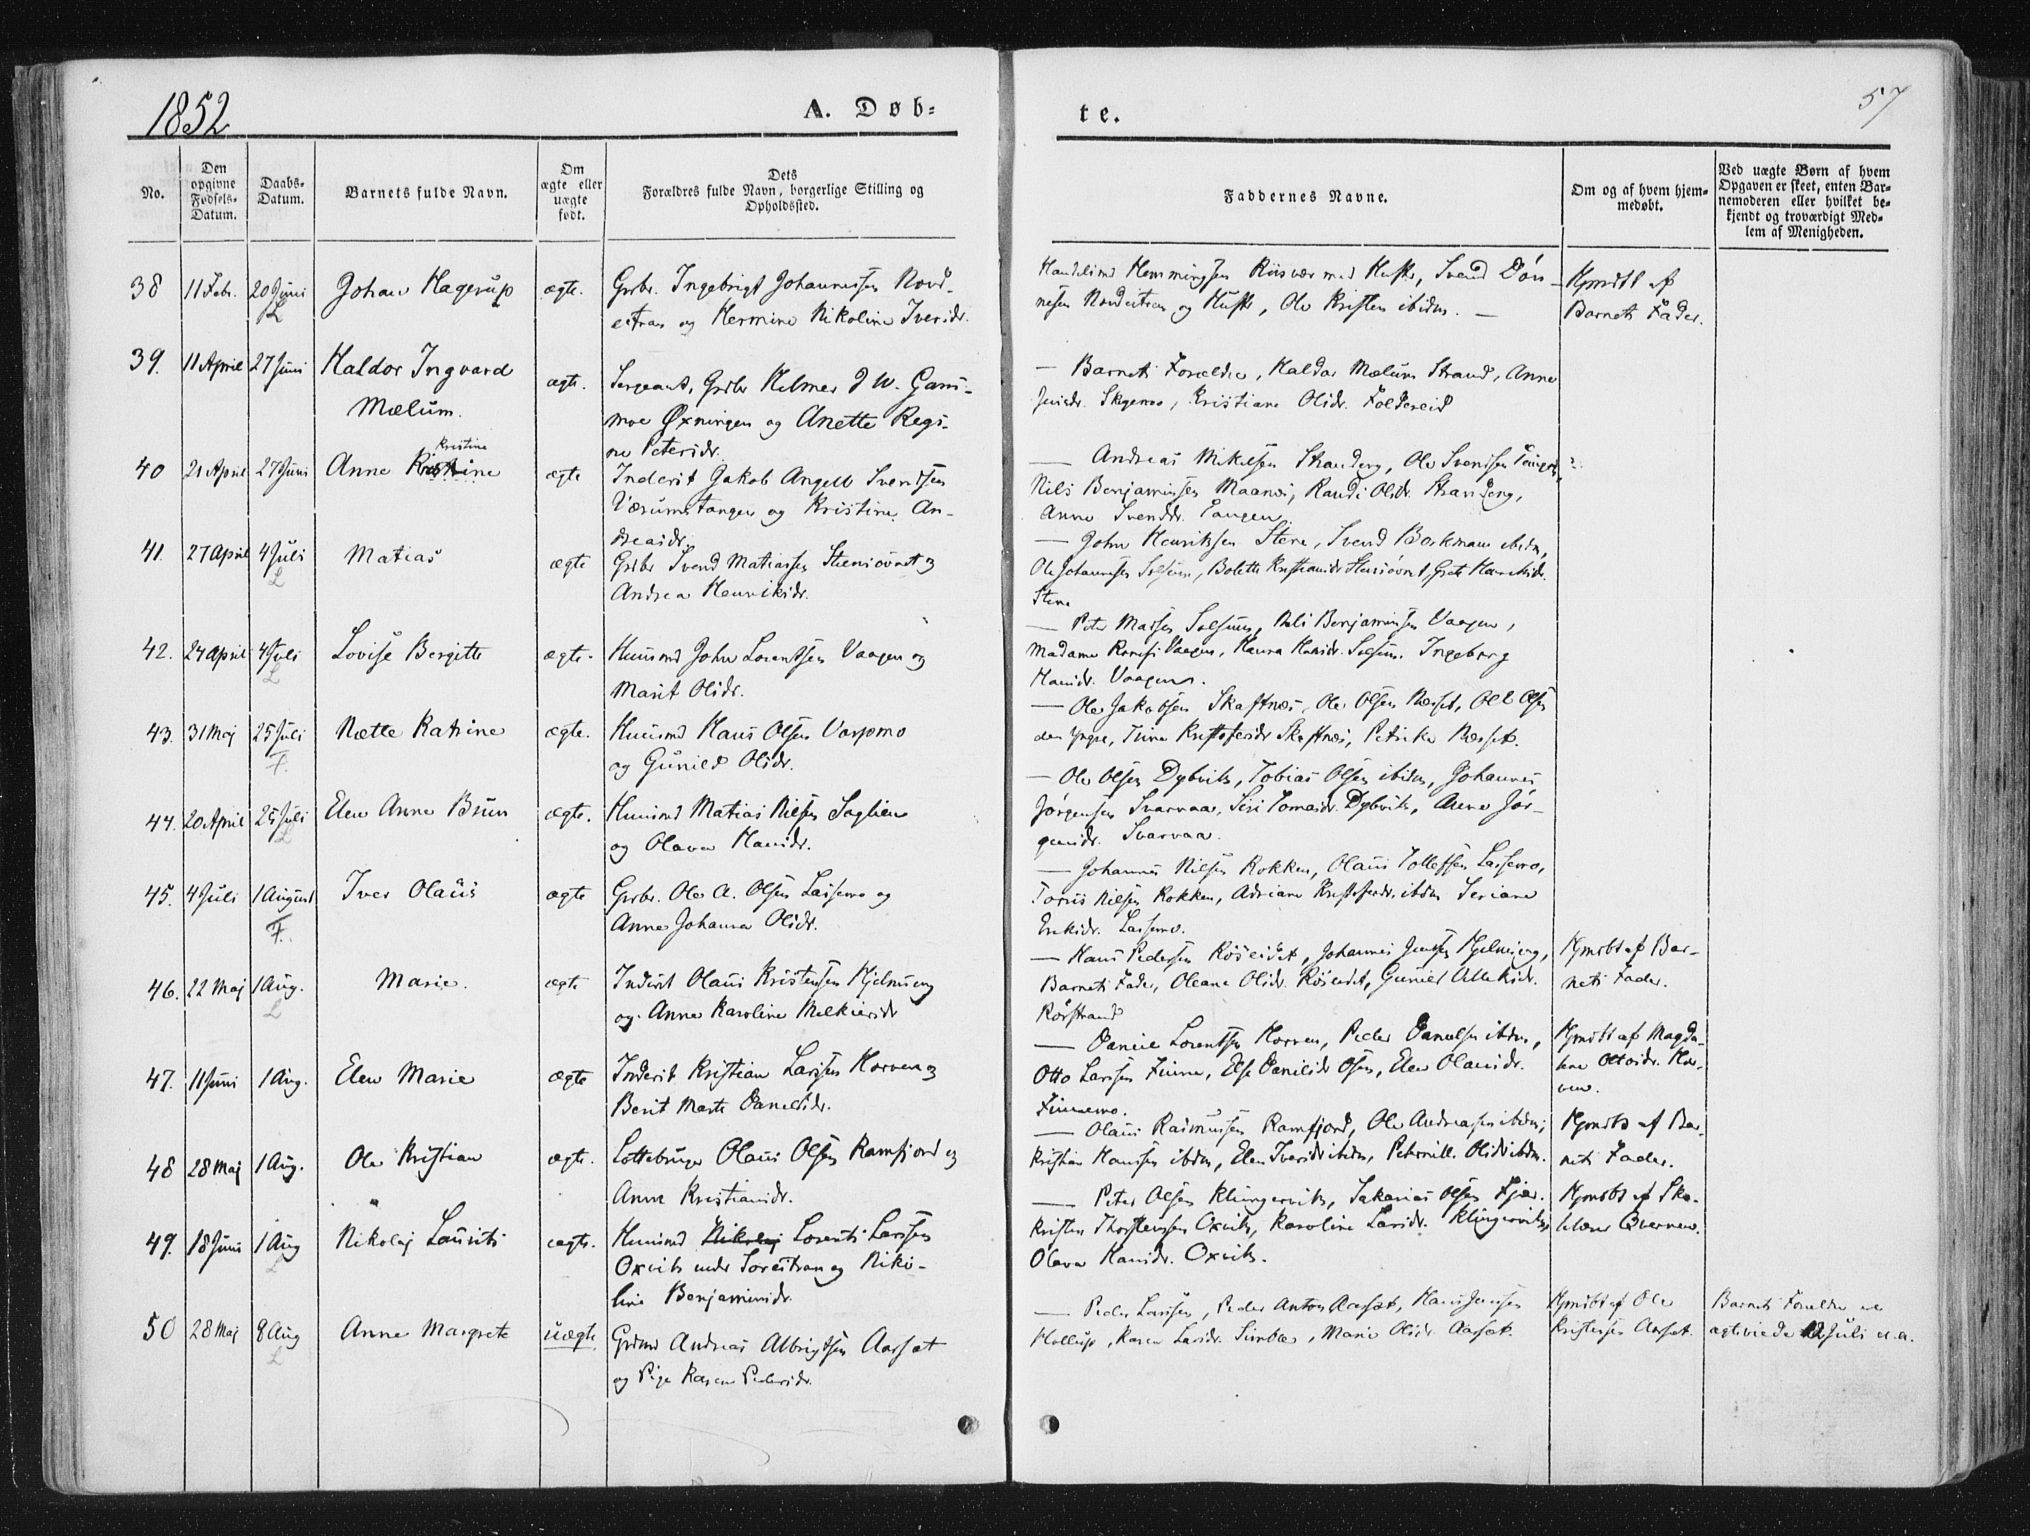 1852
A. Døb=
te.
57
No.
Den opgivne Fødsels-Datum.
Daabs-Datum.
Barnets fulde Navn.
Om ægte eller uægte født.
Dets Forældres fulde Navn, borgerlige Stilling og Opholdssted.
Faddernes Navne.
Om og af hvem hjemmedøbt.
Ved uægte Børn af hvem Opgaven er skeet, enten Barnemoderen eller hvilket bekjendt og troværdigt Medlem af Menigheden.
38 11 Febr. 20 Juni Johan Hagerup ægte. Grbr. Ingebrigt Johannessen Nord-
og Hermine Nikoline Iversdr.
med Hustr, Svend
og Hustr, Ole Kristen ibidm.
Hjmdbt af
Barnets Fader.
39. 11 April 27 Juni Haldor Ingvard
Mælum.
ægte. Sergeant, Grbr Helmer J W. Gans-
moe Øxningen og Anette Regi-
ne Petersdr.
— Barnets Forældre, Haldor Mælum Strand, Anne
Jensdr. Skogmo, Kristiane Olsdr. Foldereid
40 21 April 27 Juni Anne Kristine
Kristine
ægte Inderst Jakob Angell Svendsen
Værumstangen og Kristine An-
dreasdr.
— Andreas Mikelsen Strandeng, Ole Svendsen
Nils Benjaminsen Maanes, Randi Olsdr. Strandeng,
Anne Svendsdr. Tangen.
41. 27 April 4 Juli Matias ægte Grbr Svend Matiassen Steensovnet og
L
Andrea Henriksdr.
— John Henriksen Stene, Svend Berkman ibidm,
Ole Johannesen Solsum, Bolette Kristiansdr Grete Henriksdr.
Stene
42. 24 April 4 Juli Lovise Bergitte ægte. Huusmd John Lorentsen Vaagen og
L
Marit Olsdr.
— Peter Massen Solsum, Nils Benjaminsen Vaagen,
Madame Vaagen, Hansdr. Solsum, Ingeborg
Hansdr. Vaagen.
43. 31 Maj 25 Juli Nette Katrine ægte. Huusmd Hans Olsen Varpmo
F.
og Gunild Olsdr.
— Ole Jakobsen Skaftnes, Ole Olsen Næsset, Ole Olsen
den yngre, Trine Kristofersdr Skaftnes, Petrike Næsset.
44. 20 April 25 Juli Elen Anne Brun ægte. Huusmd Matias Nilsen Saglien
L
og Olava Hansdr.
— Ole Olsen Dybvik, Tobias Olsen ibidm, Johannes
Jørgensen Svarvaa, Siri Tomasdr. Dybvik, Anne Jør-
gensdr. Svarvaa.
45. 4 Juli 1 August Iver Olaus ægte Grbr. Ole A. Olsen Lassemo og
F.
Anne Johanna Olsdr.
— Johannes Nilsen Rokken, Olaus Tollefsen Lassemo,
Nilsen Rokken, Adriane Kristofersdr. ibidm
Eriksdr. Lassemo.
46. 22 Maj 1 Aug. Marie. ægte Inderst Olaus Kristensen Hjelmseng
L
og Anne Karoline Melkiersdr
— Hans Pedersen Röseidet, Johannes Jensen Hjelmseng,
Barnets Fader, Oleane Olsdr. Röseidet, Gunild
Rörstrand
Hjmdbt af Bar-
nets Fader.
47. 11 Juni 1 Aug. Elen Marie ægte Inderst Kristian Larsen Horven og
Berit Marte Danielsdr.
— Daniel Lorentsen Horven, Peder Danielsen ibidm,
Otto Larsen Finne, Else Danielsdr Elen Olausdr.
Finnemo.
Hjmdbt af Magda-
lene Ottosdr. Hor-
ven.
48 28 Maj 1 Aug. Ole Kristian ægte. Olaus Olsen Ramfjord og
Anne Kristiansdr.
— Olaus Rasmussen Ramfjord, Ole Andreasen ibidm,
Kristian Hansen ibidm, Elen Iversdr ibidm, Pernille Olsdr ibidm.
Hjmdbt af Bar-
nets Fader.
49. 18 Juni 1 Aug Nikolaj Laurits ægte. Huusmd Nikolaj Lorents Larsen
L
Oxvik under og Niko-
line Benjaminsdr.
— Peter Olsen Klingervik, Sakarias Olsen
Kristen Thorstensen Oxvik, Karoline Larsdr. Klingervik,
Olava Hansdr. Oxvik.
Hjmdbt af
50 28 Maj 8 Aug Anne Margrete uægte Grdmd Andreas Albrigtsen Aarsæt
L
og Pige Karen Pedersdr.
— Peder Larsen, Peder Anton Aarsæt, Hans Jensen
Hollup, Karen Larsdr. Marie Olsdr. Aarsæt.
Hjmdbt af Ole
Kristensen Aarsæt.
Barnets Forældre ere
ægteviede 12 Juli d.a.